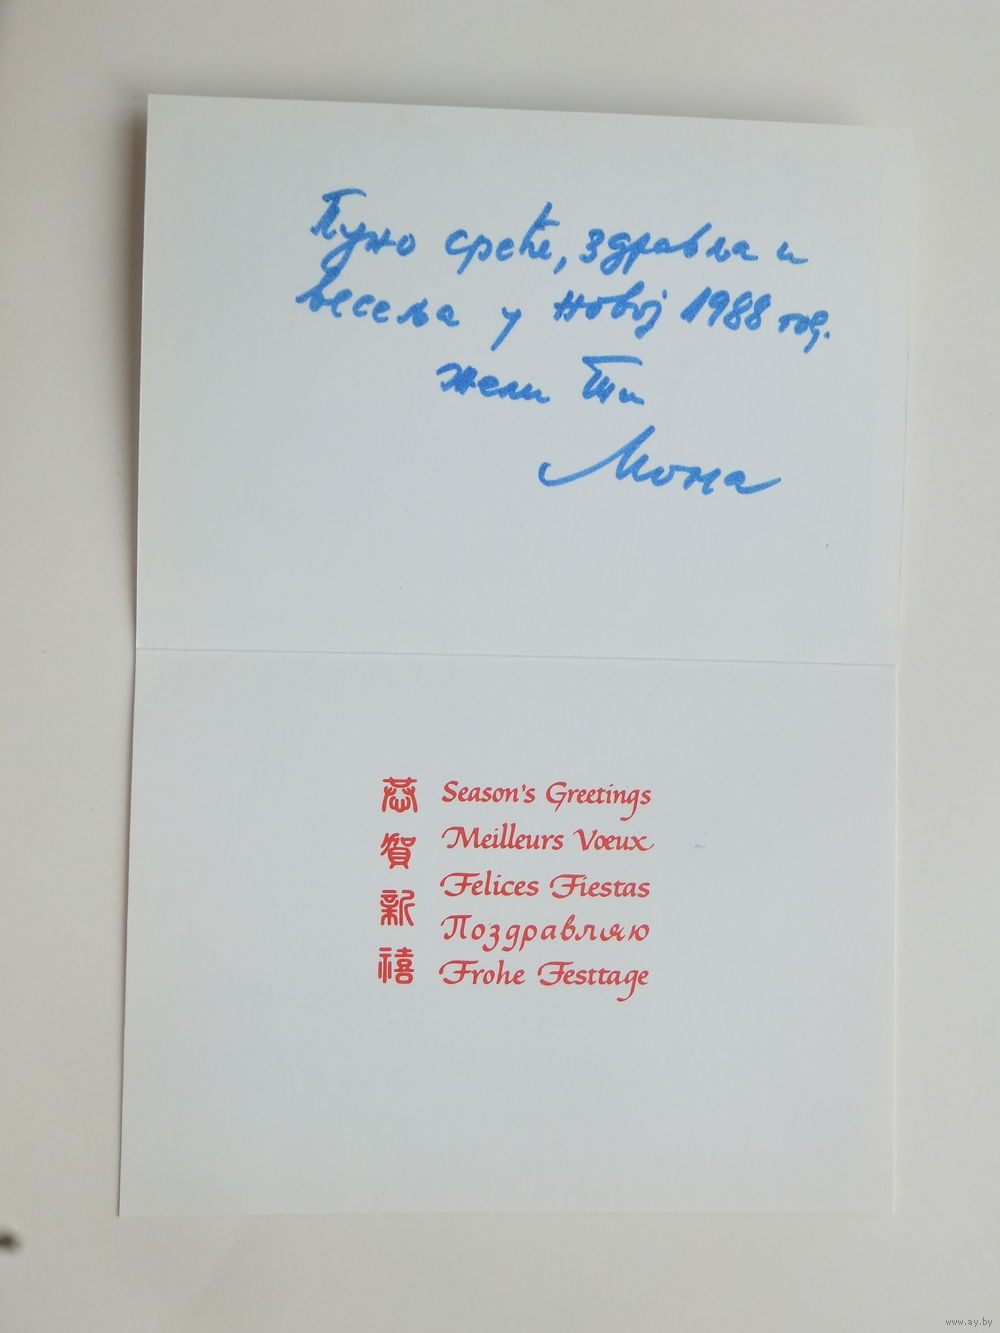 Пуно среће, здравља и
весеља у Новој 1988 год.
жели Ти
Мона
恭賀新禧
Season's Greetings
Meilleurs Vœux
Felices Fiestas
Поздравляю
Frohe Festtage
www.ay.by